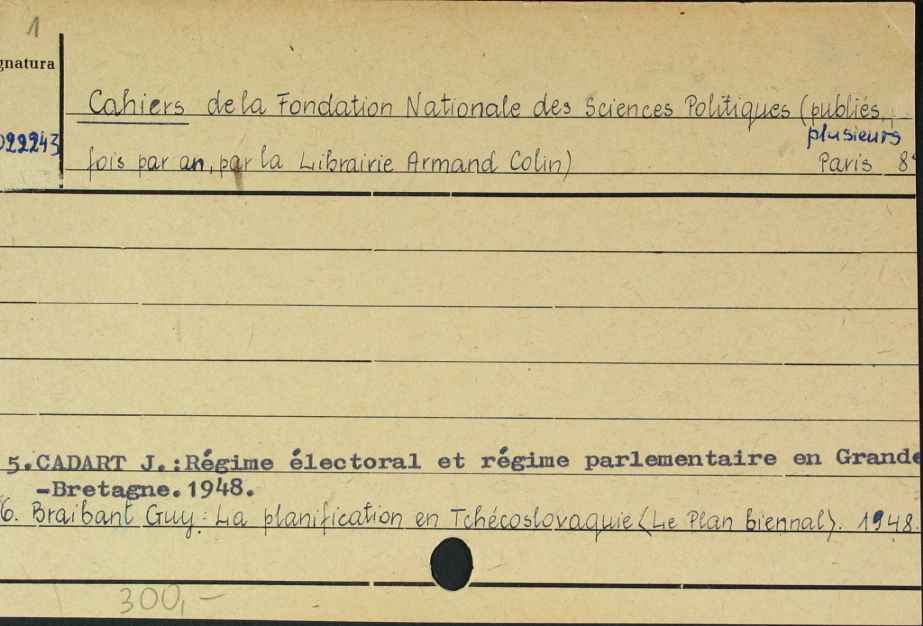 1
gnatura
Cahiers de la Fondation Nationale des Sciences Politiques (publiés,
022243
plusieurs
fois par an, par la Librairie Armand Colin)
Paris 8°
5.CADART J.:Régime électoral et régime parlementaire en Grande
-Bretagne.1948.
6. Braibant Guy: La planification en Tchécoslovaquie (Le Plan biennal). 1948.
300,-